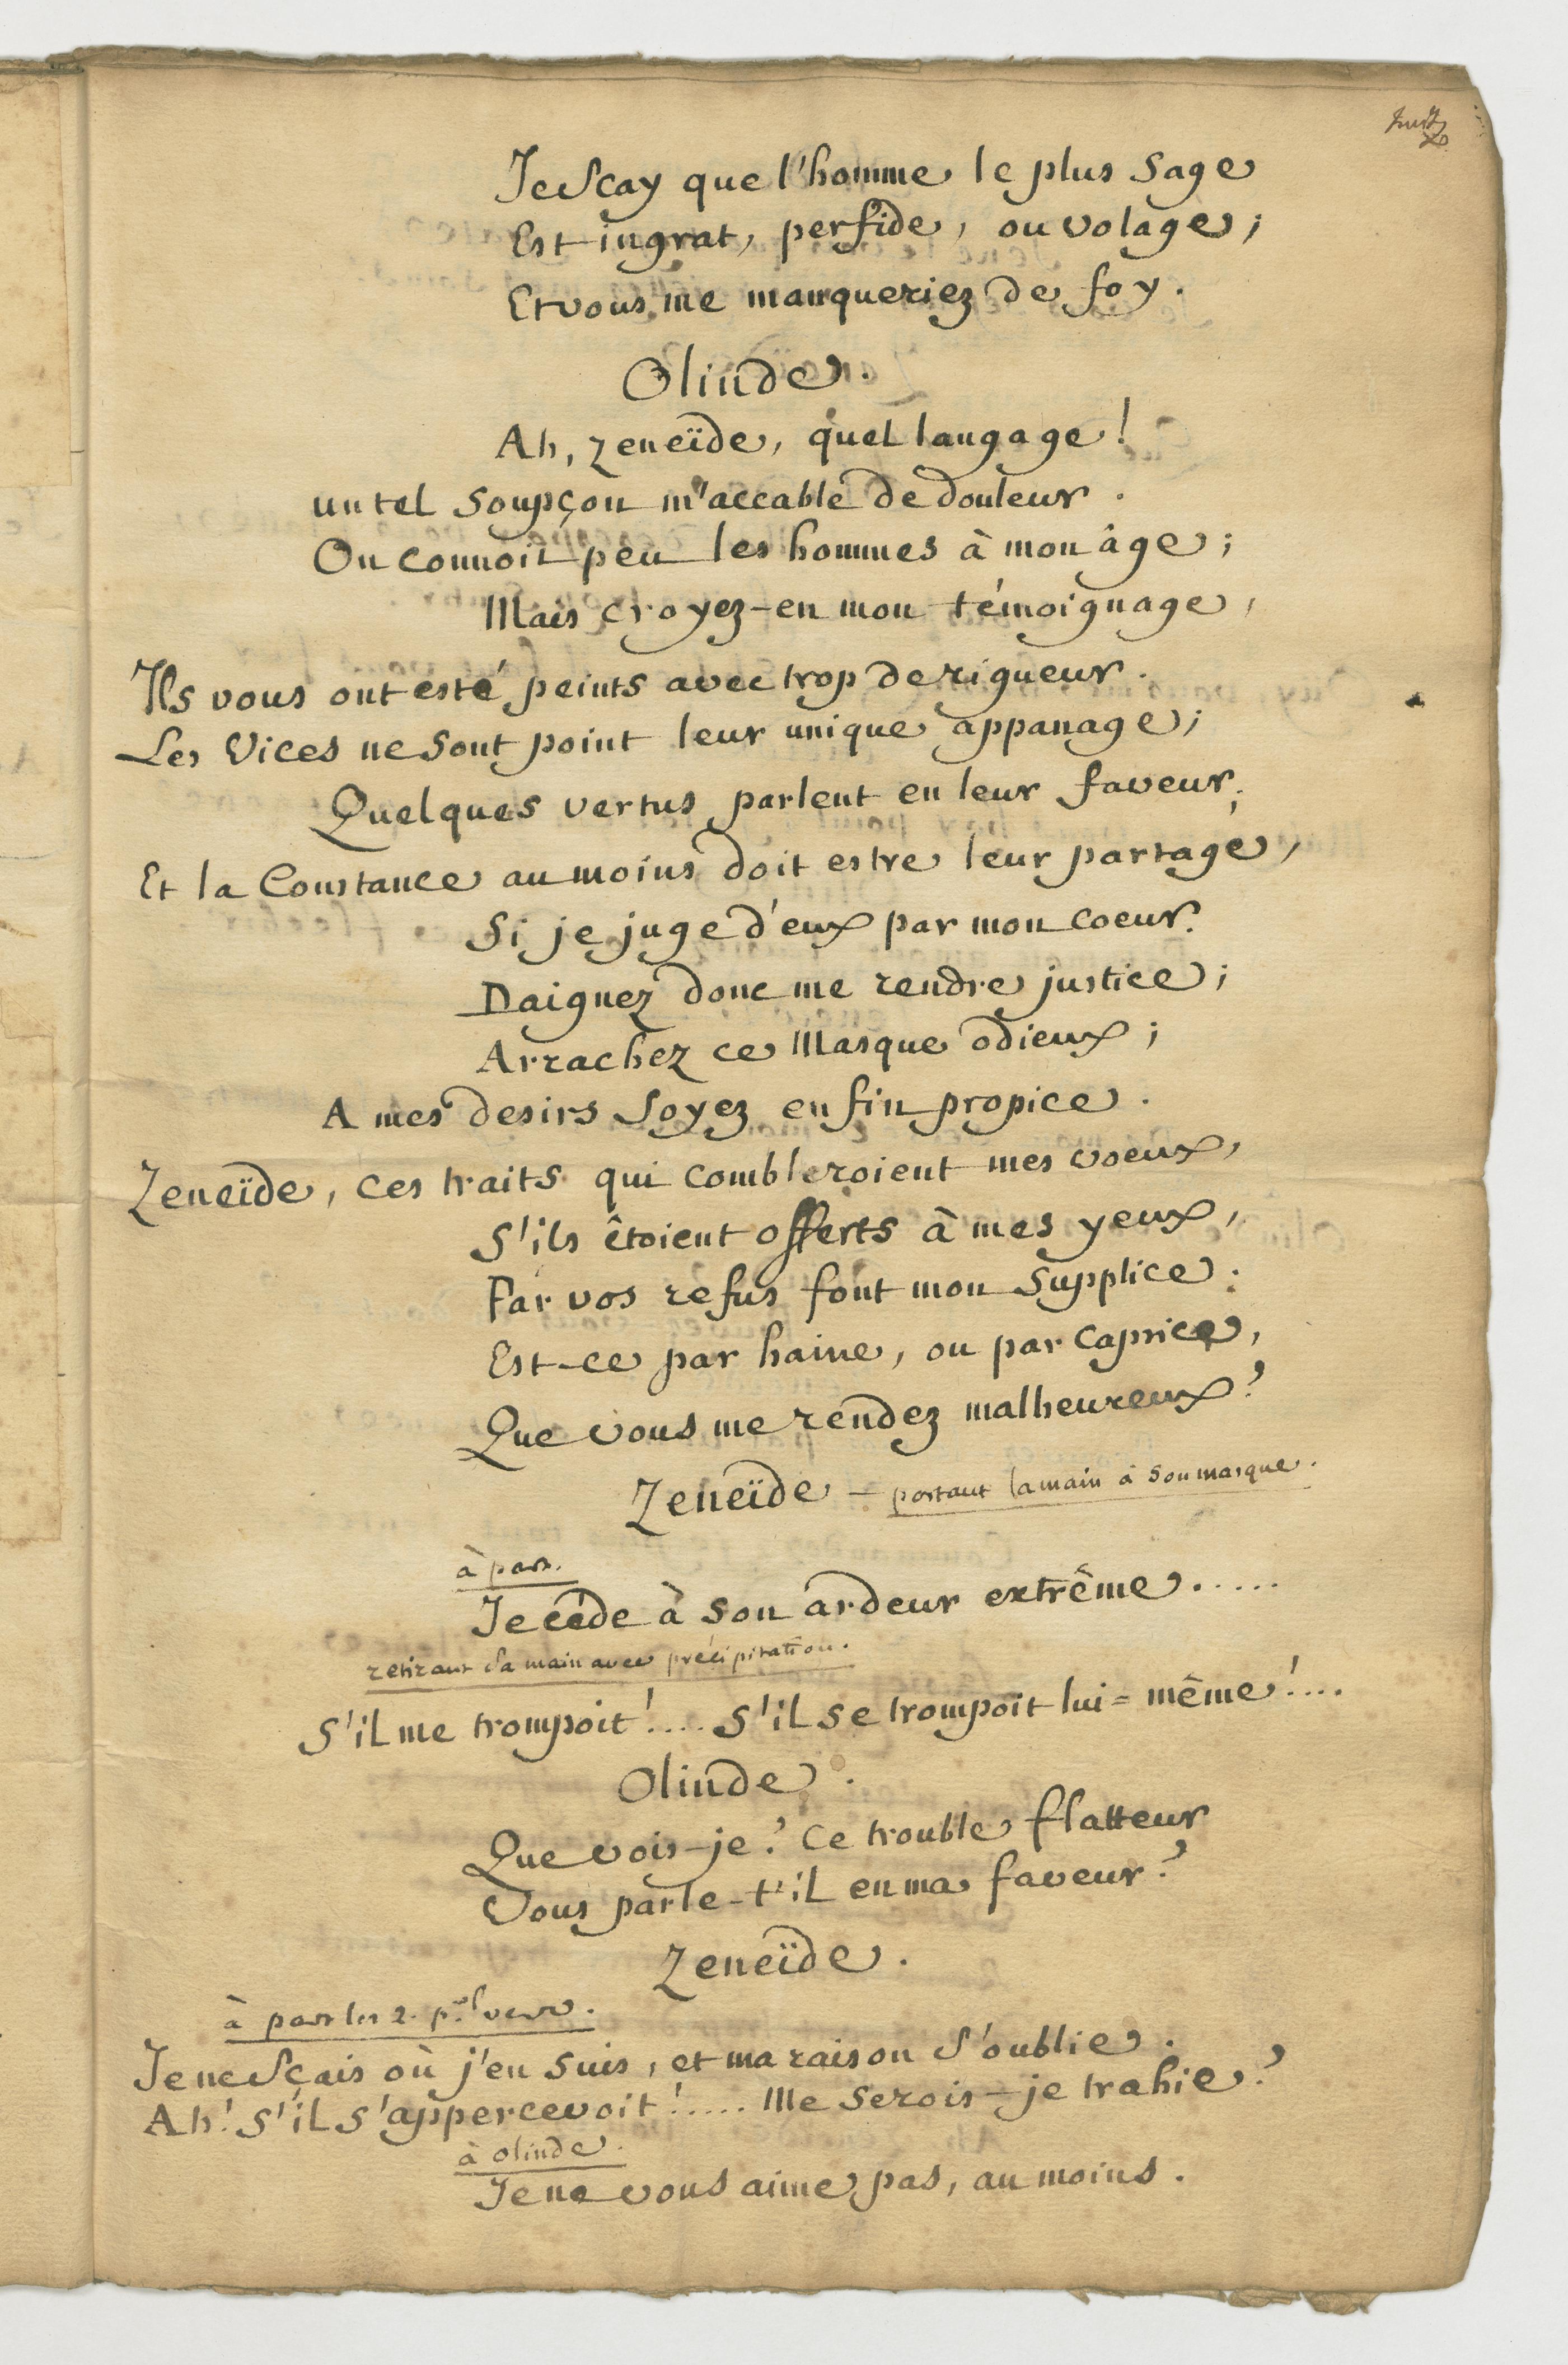 Je sçay que l'homme le plus sage
Est ingrat, perfide, ou volage;
Et vous me manqueriez de foy.
Olinde.
Ah, Zeneïde, quel langage!
un tel soupçon m'accable de douleur.
On connoit peu les hommes à mon âge;
Mais croyez-en mon témoignage,
Ils vous ont esté peints avec trop de rigueur.
Les Vices ne sont point leur unique appanage;
Quelques vertus parlent en leur faveur;
Et la Constance au moins doit estre leur partage,
Si je juge d'eux par mon coeur.
Daignez donc me rendre justice;
Arrachez ce Masque odieux;
A mes desirs soyez enfin propice.
Zeneïde, ces traits qui combleroient mes voeux,
S'ils êtoient offerts à mes yeux,
Par vos refus font mon supplice.
Est-ce par haine, ou par caprice,
Que vous me rendez malheureux?
Zeneïde - portant la main à son masque.
à part.
Je cède à son ardeur extrême.....
retirant sa main avec précipitation.
S'il me trompoit!.... S'il se trompoit lui=même!....
Olinde.
Que vois-je? Ce trouble flatteur
Vous parle-t'il en ma faveur?
Zeneïde.
à part les 2. p.rs vers.
Je ne sçais où j'en suis, et ma raison s'oublie.
Ah! s'il s'appercevoit!..... Me serois-je trahie?
à olinde.
Je ne vous aime pas, au moins.